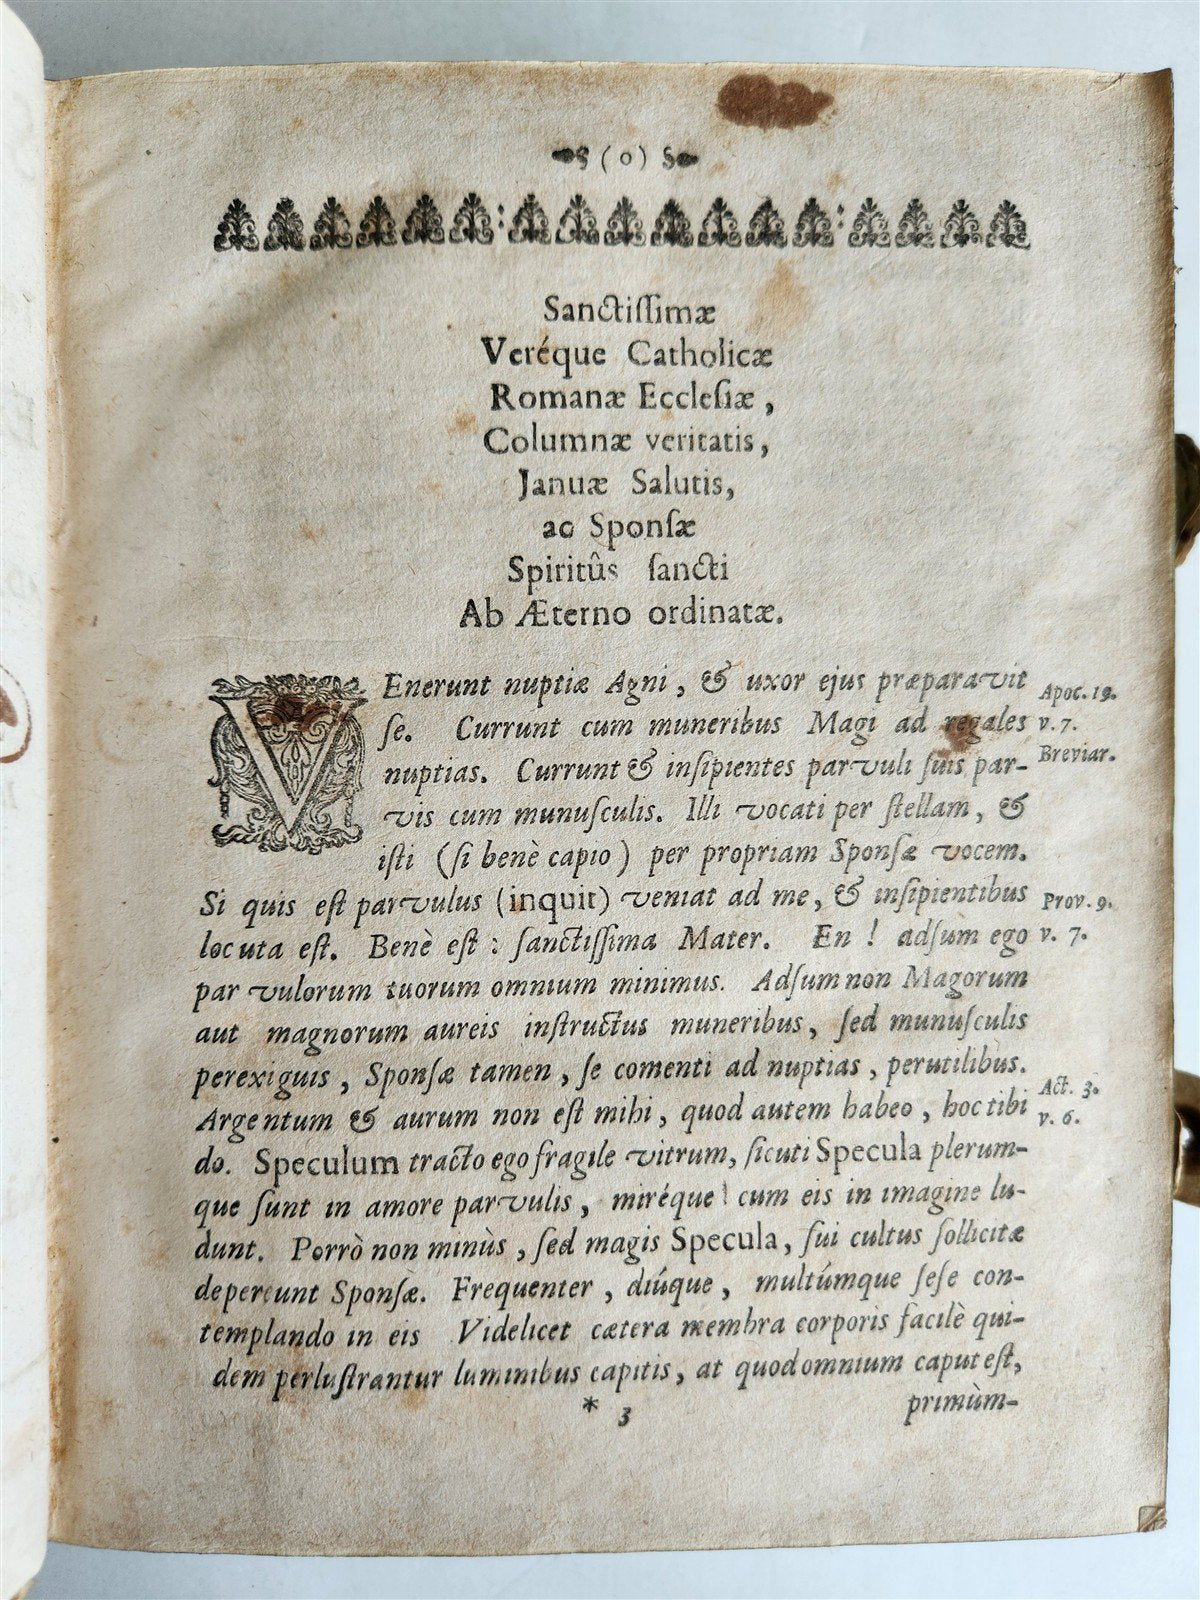 (0)
Sanctissimæ
Veréque Catholicæ
Romanæ Ecclesiæ,
Columnæ veritatis,
Januæ Salutis,
ac Sponsæ
Spiritûs sancti
Ab Æterno ordinatæ.
VEnerunt nuptiæ Agni, & uxor ejus præparavit Apoc. 19.
se. Currunt cum muneribus Magi ad regales v. 7.
nuptias. Currunt & insipientes parvuli suis par- Breviar.
vis cum munusculis. Illi vocati per stellam, &
isti (si benè capio) per propriam Sponsæ vocem.
Si quis est parvulus (inquit) veniat ad me, & insipientibus Prov. 9.
locuta est. Benè est: sanctissima Mater. En! adsùm ego v. 7.
parvulorum tuorum omnium minimus. Adsum non Magorum
aut magnorum aureis instructus muneribus, sed munusculis
perexiguis, Sponsæ tamen, se comenti ad nuptias, perutilibus.
Argentum & aurum non est mihi, quod autem habeo, hoc tibi Act. 3. v. 6.
do. Speculum tracto ego fragile vitrum, sicuti Specula plerum-
que sunt in amore parvulis, miréque cum eis in imagine lu-
dunt. Porrò non minùs, sed magis Specula, sui cultus sollicitæ
depereunt Sponsæ. Frequenter, diúque, multúmque sese con-
templando in eis Videlicet cætera membra corporis facilè qui-
dem perlustrantur luminibus capitis, at quod omnium caput est,
* 3 primùm-